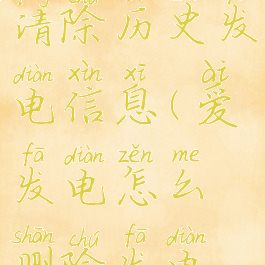 清除历史发
diàn xìn xī ài
电信息(爱
fā diàn zěn me
发电怎么
shān chú fā diàn
删除发电